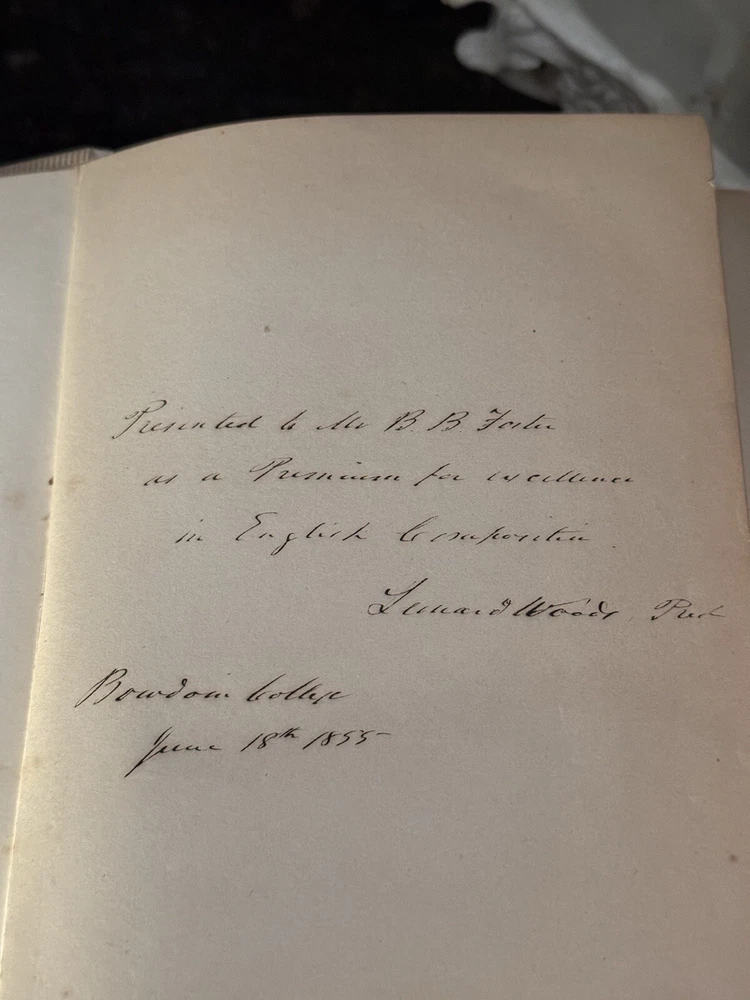 Presented to Mr B. B. Foster
as a Premium for excellence
in English Composition
Leonard Woods, Prest
Bowdoin College
June 18th 1855